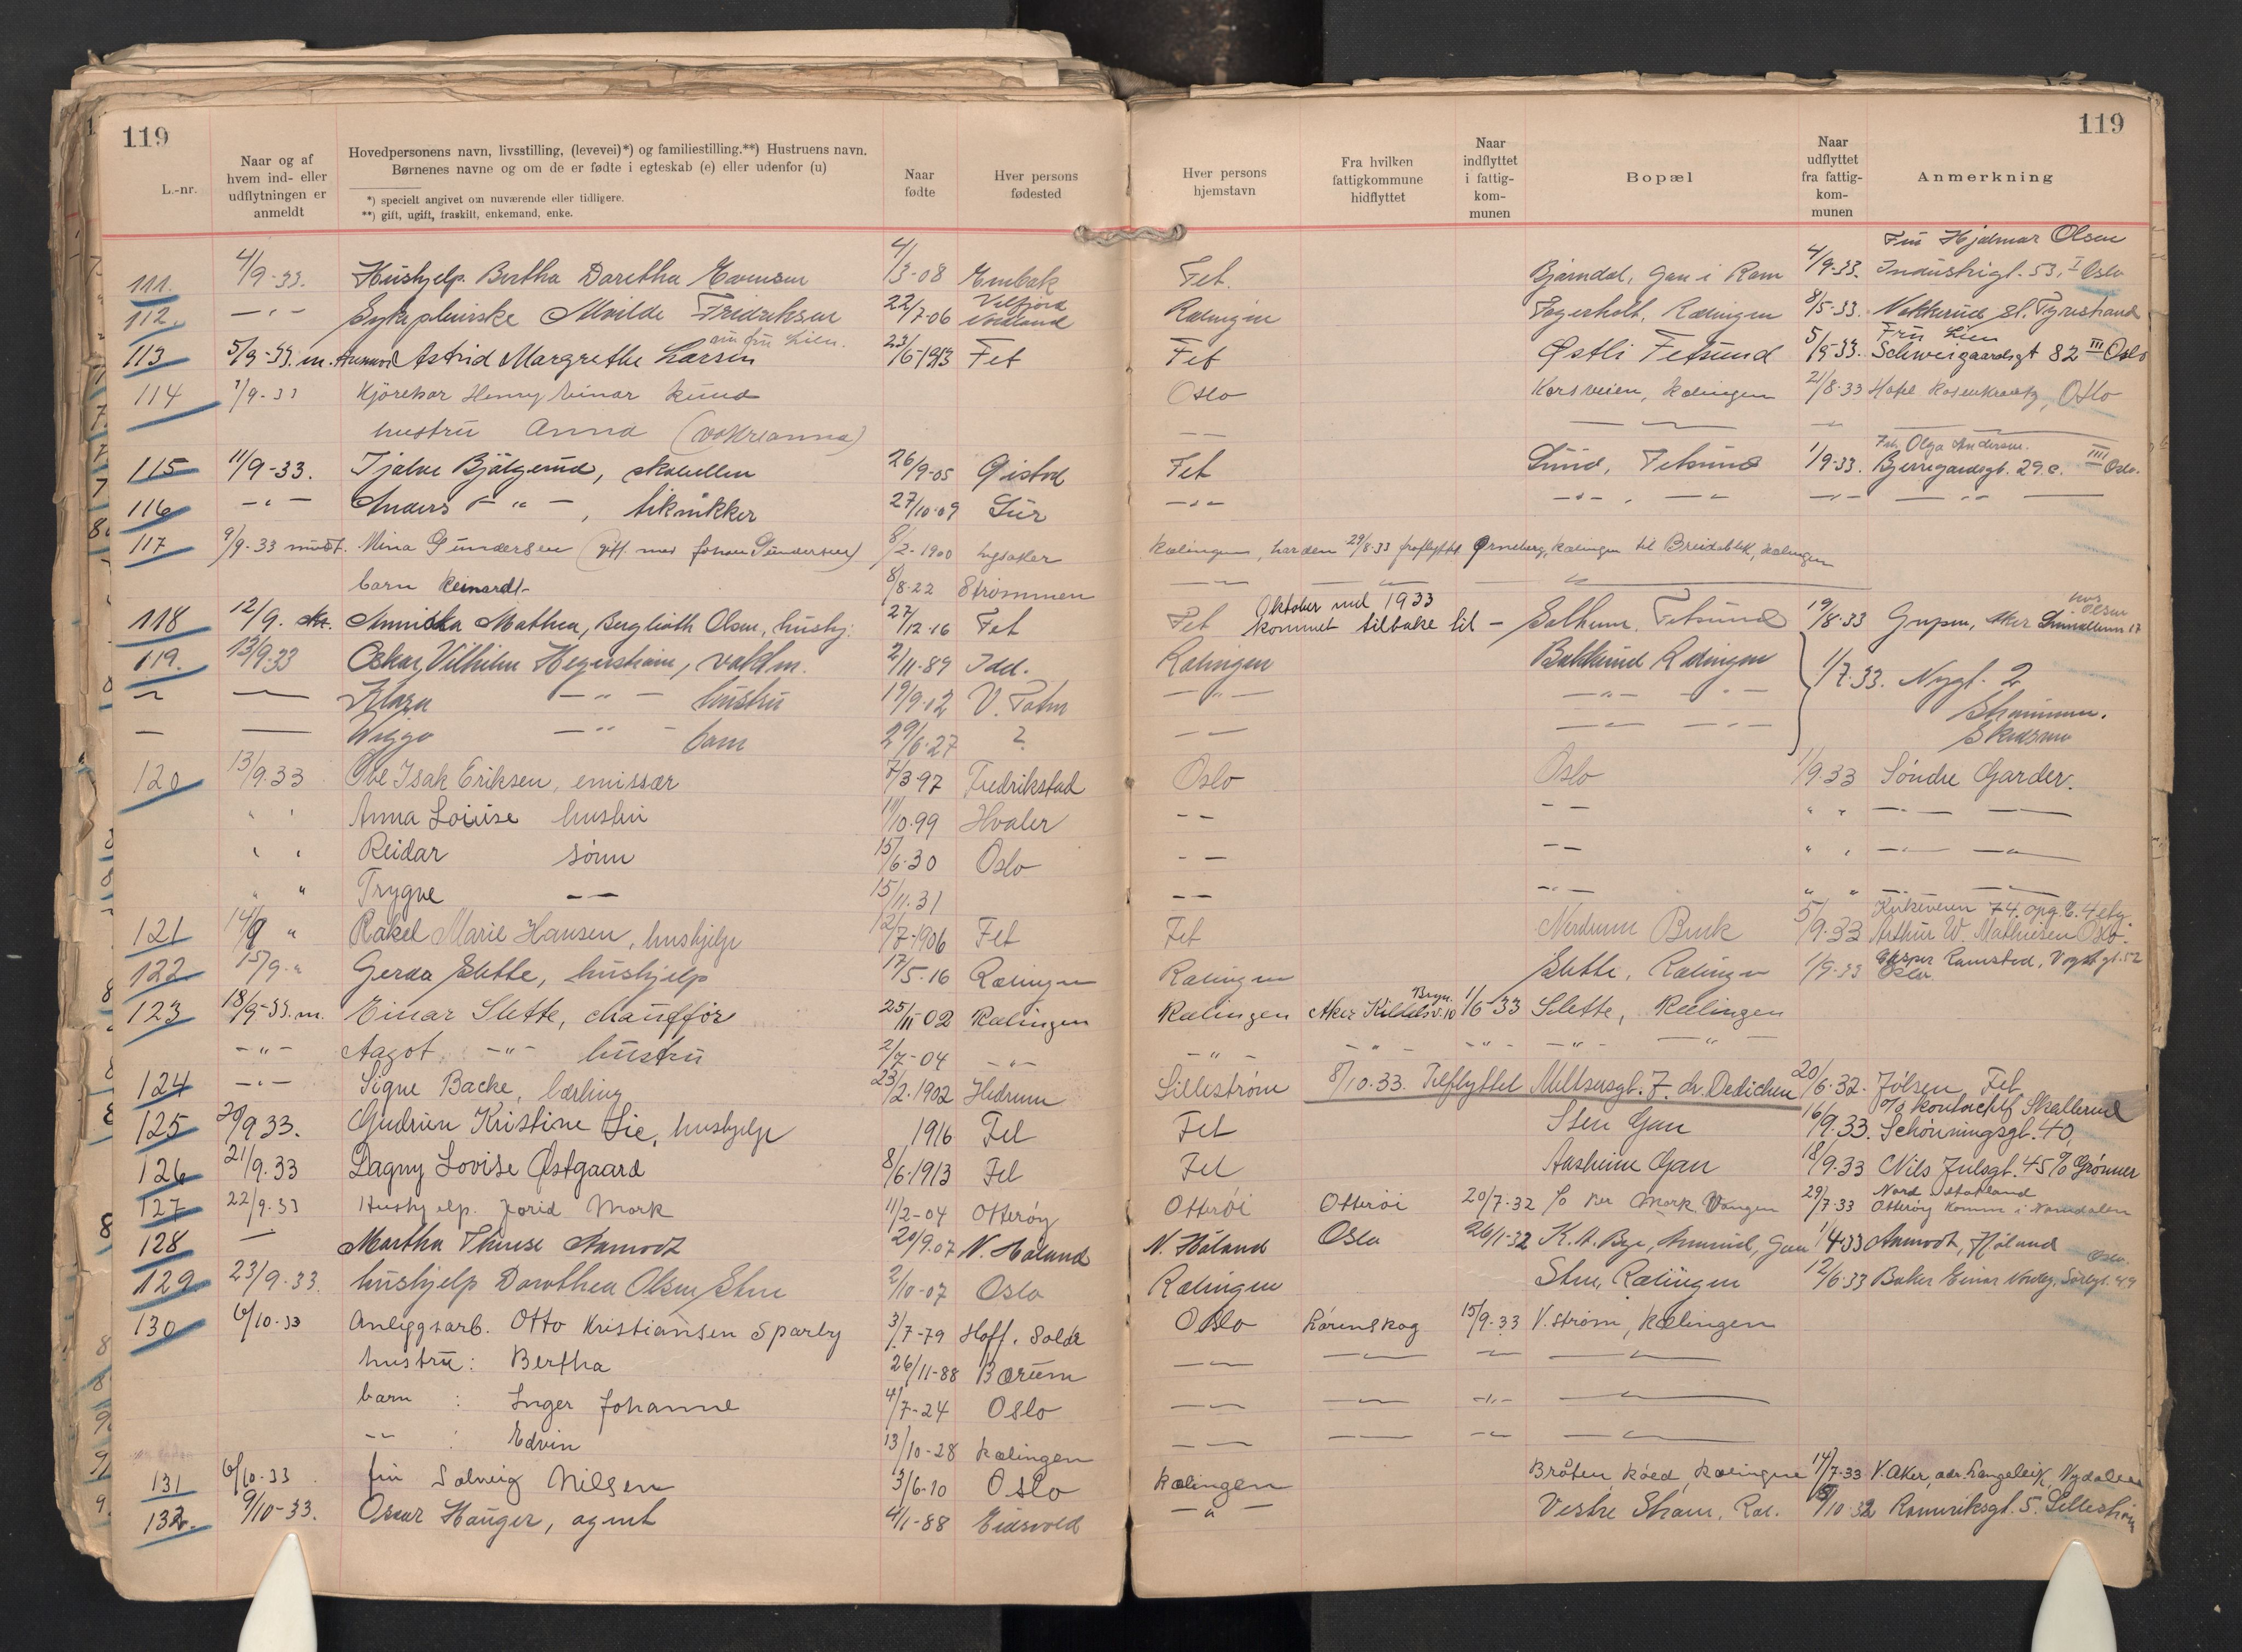 119
119
L.-nr.
Naar og af hvem ind- eller udflytningen er anmeldt
Hovedpersonens navn, livsstilling, (levevei)*) og familiestilling.**) Hustruens navn.
Børnenes navne og om de er fødte i egteskab (e) eller udenfor (u)
*) specielt angivet om nuværende eller tidligere.
**) gift, ugift, fraskilt, enkemand, enke.
Naar fødte
Hver persons fødested
Hver persons hjemstavn
Fra hvilken fattigkommune hidflyttet
Naar indflyttet i fattigkommunen
Bopæl
Naar udflyttet fra fattigkommunen
Anmerkning
Fru Hjalmar Olsen
111. 4/9-33. Hushjelp. Bertha Daretha Evensen 4/3-08 Enebak Fet. Bjørndal, Gan i Rom 4/9-33. Industrigt. 53, I Oslo
112. -"- Sykepleierske Alvilde Fridriksen 22/7-06 Velfjord Nordland Rælingen Fagerholt, Rælingen 8/5-33. Nakkerud st. Tyristrand
nu fru Lien. Fru Lien
113 5/9-33. m. Astrid Margrethe Larsen 23/6-1913 Fet Fet Østli Fetsund 5/9-33. Schweigaardsgt 82 III Oslo
114 7/9-33 Kjørekar Henry Einar Rund Oslo Korsveien, Rælingen 21/8-33 Hotel Rosenkrantz, Oslo
hustru Anna
Frk Olga Andersen.
115 11/9-33. Tjalve Bjälgerud, 26/9-05 Fet Lund, Fetsund 1/9-33. Bjerregaardsgt. 29.c. III Oslo.
116 -"- Anders -"-, 27/10-09 -"- -"- -"- -"- -"-
117 9/9-33 mundt. Mina Gundersen (gift med Johan Gundersen) 8/2-1900 Lysaker Rælingen, har den 29/8-33 fraflyttet Ørneberg, Rælingen til Breidablik, Rælingen
barn Reinardt 8/8-22 Strømmen -"-
118 12/9. Mathea, Berglioth Olsen, hushj. 27/12-16 Fet Fet Oktober md 1933 kommet tilbake til - Solheim. Fetsund 19/8-33 Aker hos Olsen
119. 13/9.33 Oskar Vilhelm 2/11-89 Idd. Rælingen Bakkerud Rælingen 1/7-33. Nygt. 2
Klara -"- hustru 19/9-02 V. Toten -"- -"- Strømmen.
Viggo -"- barn 29/6-27 ? -"- -"- Skedsmo
120 13/9.33 Ole Isak Eriksen, emissær 7/3-97 Fredrikstad Oslo Oslo 1/9.33 Søndre Garder.
" " Anna Louise hustru 11/10.99 Hvaler - - - - " " -"-
" " Reidar sønn 15/6-30 Oslo - - - - " " -"-
" " Trygve - - 15/11.31 - - -"- " " -"-
Kirkeveien 74. opg. C. 4 etg.
121 14/9 " Rakel Marie Hansen, hushjelp 12/7-1906 Fet Fet Nerdrum Bruk 5/9.33 Arthur W. Mathiesen Oslo.
122 15/9 " Gerda Slette, hushjelp 17/5-16 Rælingen Rælingen Slette, Rælingen 1/9-33 Casper Ramstad, Vogts gt. 52 Oslo
123 18/9-33. m. Einar Slette, chauffør 25/11 02 Rælingen Rælingen Aker Kildalsv. 10 Bryn. 1/6-33 Slette, Rælingen
-"- Aagot -"- hustru 2/7-04 -"- -"- -"- -"- -"- -"-
124 -"- Signe Backe, lærling 23/2.1902 Hedrum Lillestrøm 8/10.33. Tilflyttet Meltzersgt. 7. dr. Dedichen 20/6-32. Jølsen, Fet
c/o kontorchef Skallerud
125 20/9.33. Gudrun Kristine Lie, hushjelp 1916 Fet Fet Sten Gan 16/9.33. Schønningsgt. 40,
126 21/9.33 Dagny Lovise Østgaard 8/6-1913 Fet Fet Aasheim Gan 18/9-33 Nils Julsgt. 45 c/o Grønner
127 22/9.33 Hushjelp. Jorid Mork 11/2-04 Otterøy Otterøi Otterøi 20/7-32 c/o Per Mork Vangen 29/7-33 Nord Statland Otterøy komm. i Namdalen
128 - Martha Therese Aamodt 20/9.07 N. Høland N. Høland Oslo 26/1-32 K. A. Bye, Gan 1/4-33 Aamodt, Høland
129 23/9-33. hushjelp Dorothea Olsen Stue 2/10-07 Oslo Rælingen Stue, Rælingen 12/6-33 Baker Einar Nordby, Sørligt. 49 Oslo.
130 6/10-33 Anleggsarb. Otto Kristiansen Sparby 3/7-79 Hoff. Solør Oslo Lørenskog 15/9-33 V. strøm, Rælingen
hustru: Bertha 26/11-88 Bærum -"- -"- -"- -"-
barn : Inger Johanne 4/7-24 Oslo -"- -"- -"- -"-
-"- : Edvin 13/10-28 Rælingen -"- -"- -"- -"-
131 6/10-33 fru Solveig Nilsen 3/6-10 Oslo Rælingen Bråten, Rælingen 14/7-33 V. Aker, adr. Langeleik, Nydalen
132. 9/10-33. Oscar Hauger, agent 4/1-88 Eidsvold -"- Vestre Strøm, Ræl. 10-32 Romeriksgt. 5. Lillestrøm